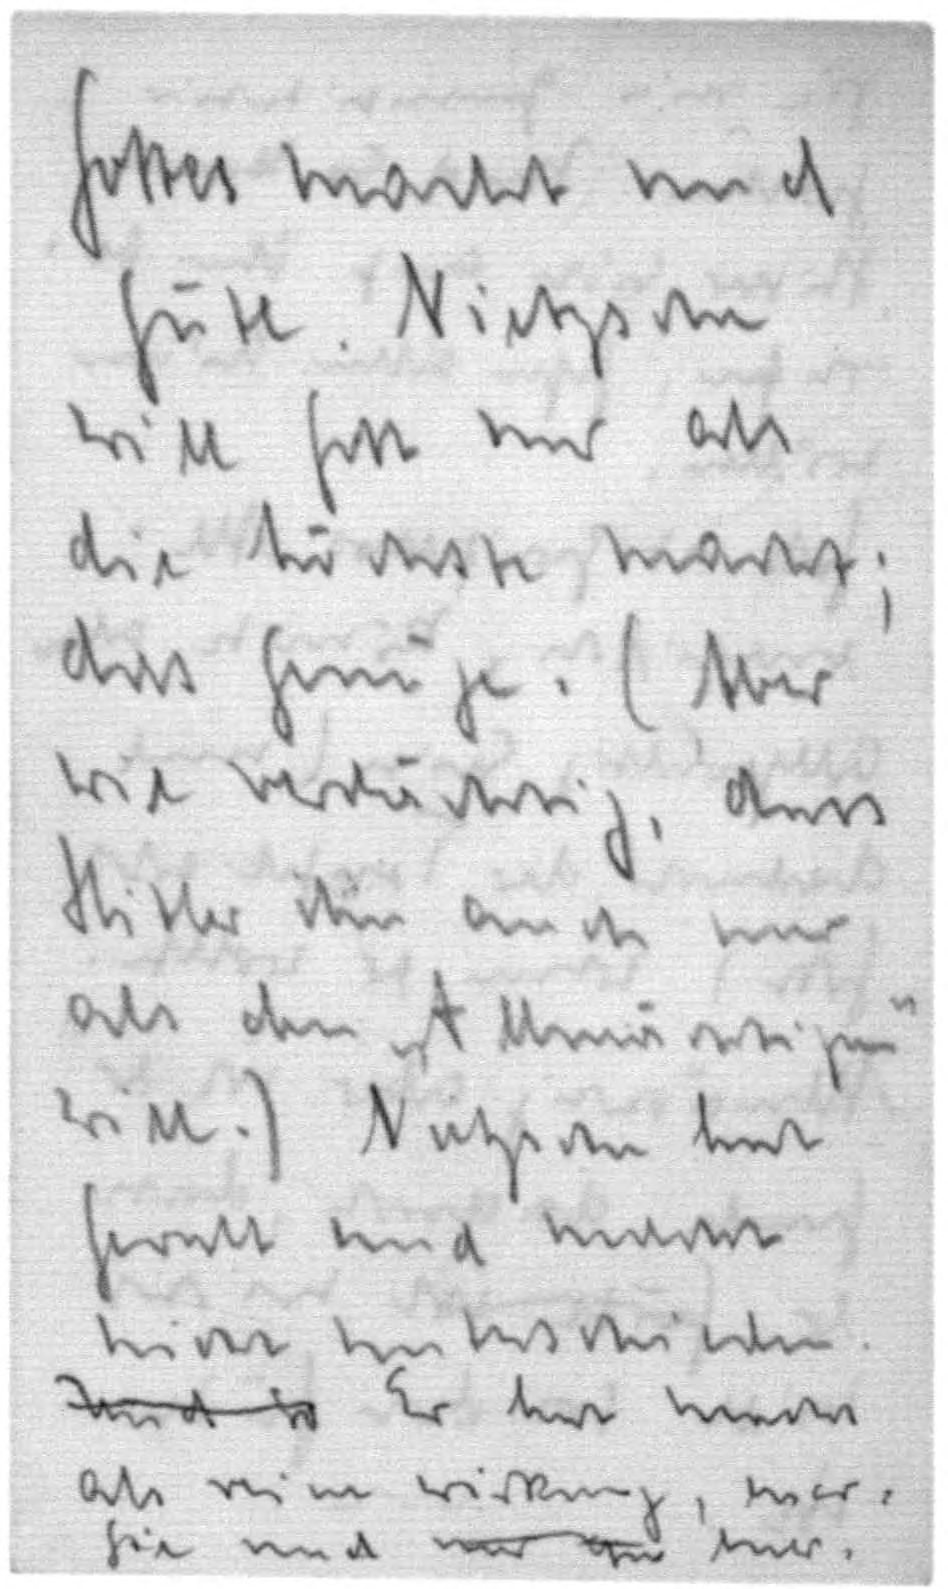 Gottes macht und
Güte. Nietzsche
will Gott nur als
die höchste macht;
das genüge. (Aber
wie verdächtig, dass
Hitler ihn auch nur
als den „Allmächtigen“
will.) Nietzsche hat
Gewalt und macht
nicht unterschieden.
Und so Er hat macht
als reine wirkung, ener-
gie und